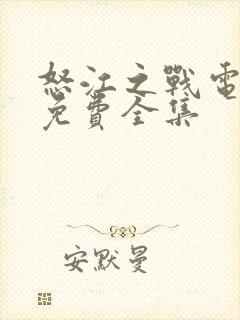 怒江之戰電
免費全集
安默曼